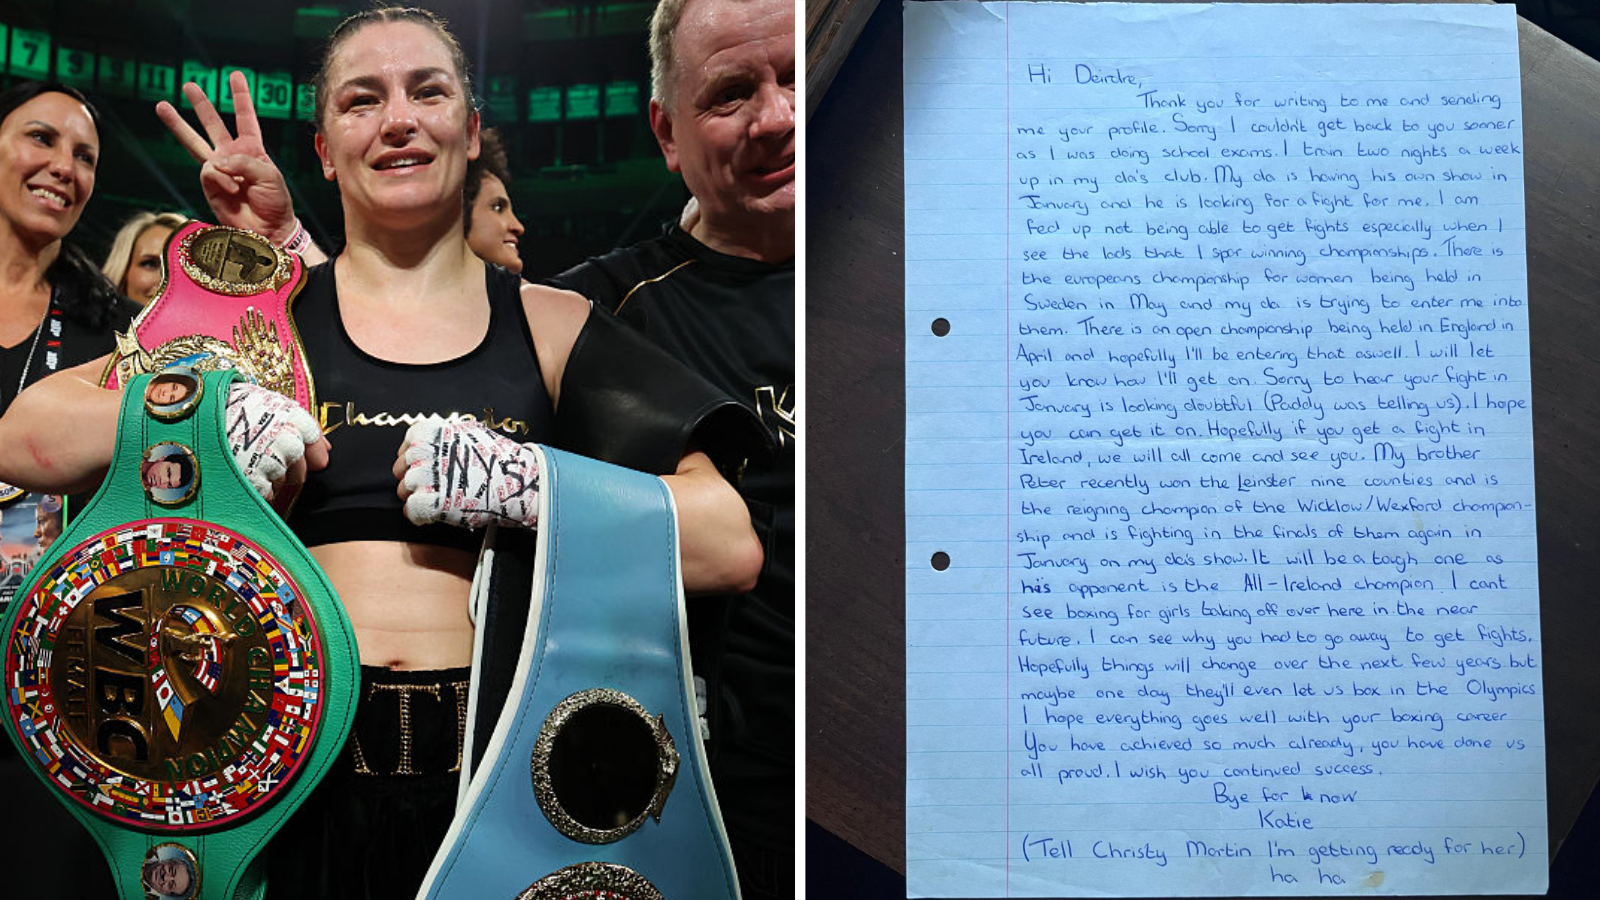 7
9
11
11
30
Champion
NYS
WORLD CHAMPION
WBC
FEMALE
KT
Hi Deirdre,
Thank you for writing to me and sending
me your profile. Sorry I couldn't get back to you sooner
as I was doing school exams. I train two nights a week
up in my da's club. My da is having his own show in
January and he is looking for a fight for me. I am
fed up not being able to get fights especially when I
see the lads that I spar winning championships. There is
the europeans championship for women being held in
Sweden in May and my da is trying to enter me into
them. There is an open championship being held in England in
April and hopefully I'll be entering that aswell. I will let
you know how I'll get on. Sorry to hear your fight in
January is looking doubtful (Paddy was telling us). I hope
you can get it on. Hopefully if you get a fight in
Ireland, we will all come and see you. My brother
Peter recently won the Leinster nine counties and is
the reigning champion of the Wicklow/Wexford champion-
ship and is fighting in the finals of them again in
January on my da's show. It will be a tough one as
his opponent is the All-Ireland champion. I cant
see boxing for girls taking off over here in the near
future. I can see why you had to go away to get fights.
Hopefully things will change over the next few years but
maybe one day they'll even let us box in the Olympics
I hope everything goes well with your boxing career
You have achieved so much already, you have done us
all proud. I wish you continued success.
Bye for know
Katie
(Tell Christy Martin I'm getting ready for her)
ha ha